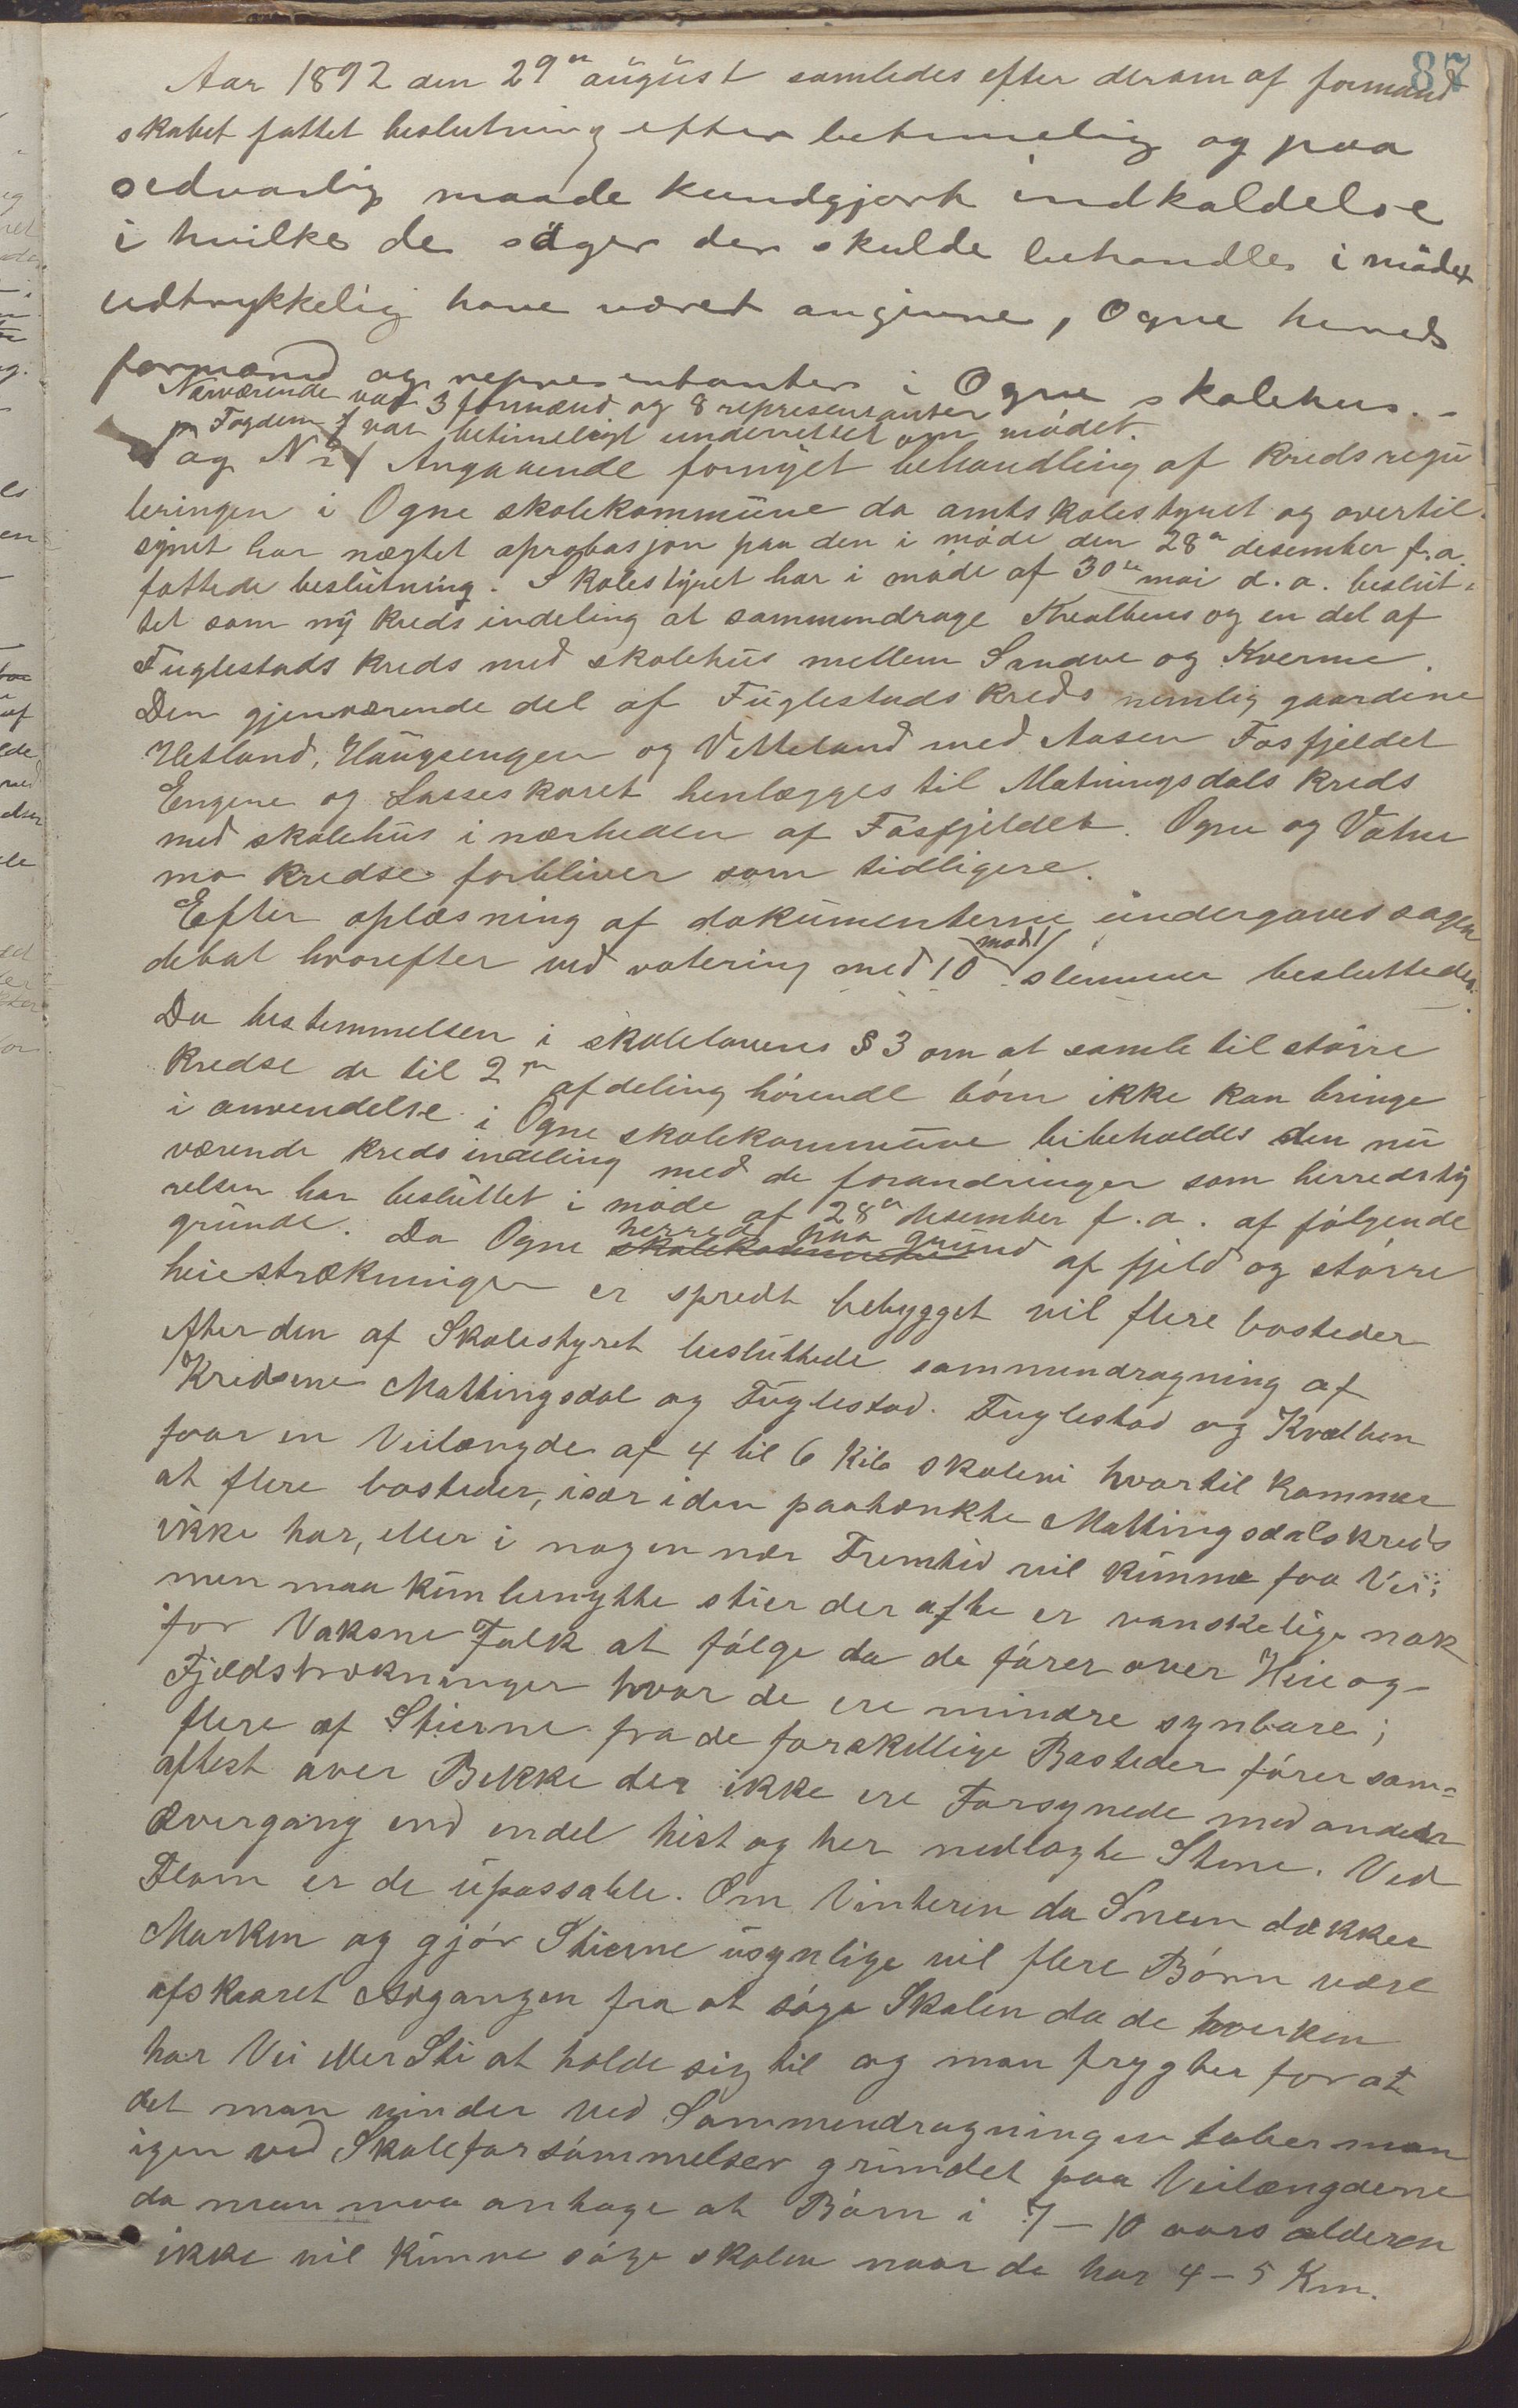 87
Aar 1892 den 29de august samledes efter derom af formand
skabet fattet beslutning efter betimelig og paa
sedvanlig maade kundgjort indkaldelse
i hvilke de säger der skulde behandles i mödet
udtrykkelig have været angivne, Ogne herreds
formænd og representanter i Ogne skolehus. –
Nærværende var 3 formænd og 8 representanter
Fogden var betimeligt underrettet om mödet.
Sag Nr 1 Angaaende fornyet behandling af kredsregu
leringen i Ogne skolekommune da amtskolestyret og overtil-
synet har nægtet aprobasjon paa den i möde den 28de desember f.a.
fattede beslutning. Skolestyret har i möde af 30te mai d.a. beslut-
tet som ny kredsindeling at sammendrage Kvalbens og en del af
Fuglestads kreds med skolehus mellem Sandve og Kverme.
Den gjenværende del af Fuglestads kreds nemlig gaardene
Hetland, Haugsengen og Vetteland med Aasen Fosfjeldet
Engene og Lasseskaret henlægges til Matningsdals kreds
med skolehus i nærheden af Fosfjeldet. Ogne og Vatne
mo kredse forbliver som tidligere.
Efter oplæsning af dokumenterne undergaves sagen
debat hvorefter ved votering med 10 mod 1 stemmer besluttedes:
Da bestemmelsen i skolelovens § 3 om at samle til större
kredse de til 2den afdeling hörende börn ikke kan bringe
i anvendelse i Ogne skolekommune bibeholdes den nu
værende kredsindeling med de forandringer som herredsty
relsen har besluttet i möde af 28de desember f.a. af fölgende
grunde. Da Ogne skolekommune herred paa grund af fjeld og större
heiestrækninger er spredt bebygget vil flere bosteder
efter den af Skolestyret besluttede sammendragning af
Kredsene Mattingsdal og Fuglestad. Fuglestad og Kvalben
faar en Veilængde af 4 til 6 Kilo skolevei hvortil kommer
at flere bosteder, især i den paatænkte Mattingsdalskreds
ikke har, eller i nogen nær Fremtid vil kunne faa Vei;
men maa kun benytte stier der ofte er vanskelige nok
for Vaksne Folk at fölge da de förer over Heie og
Fjeldstrækninger hvor de ere mindre synbare;
flere af Stierne fra de forskellige Bosteder förer som-
oftest over Bekke der ikke ere Forsynede med anden
Overgang end endel hist og her nedlagte Stene. Ved
Flom er de upassable. Om Vinteren da Sneen dækker
Marken og gjör Stierne usynlige vil flere Börn være
afskaaret Adgangen fra at söge Skolen da de hverken
har Vei eller Sti at holde sig til og man frygter for at
det man vinder ved Sammendragningen taber man
igen ved Skoleforsömmelser grundet paa Veilængderne
da man maa antage at Börn i 7 – 10 aars alderen
ikke vil kunne söge skolen naar de har 4 – 5 Km.